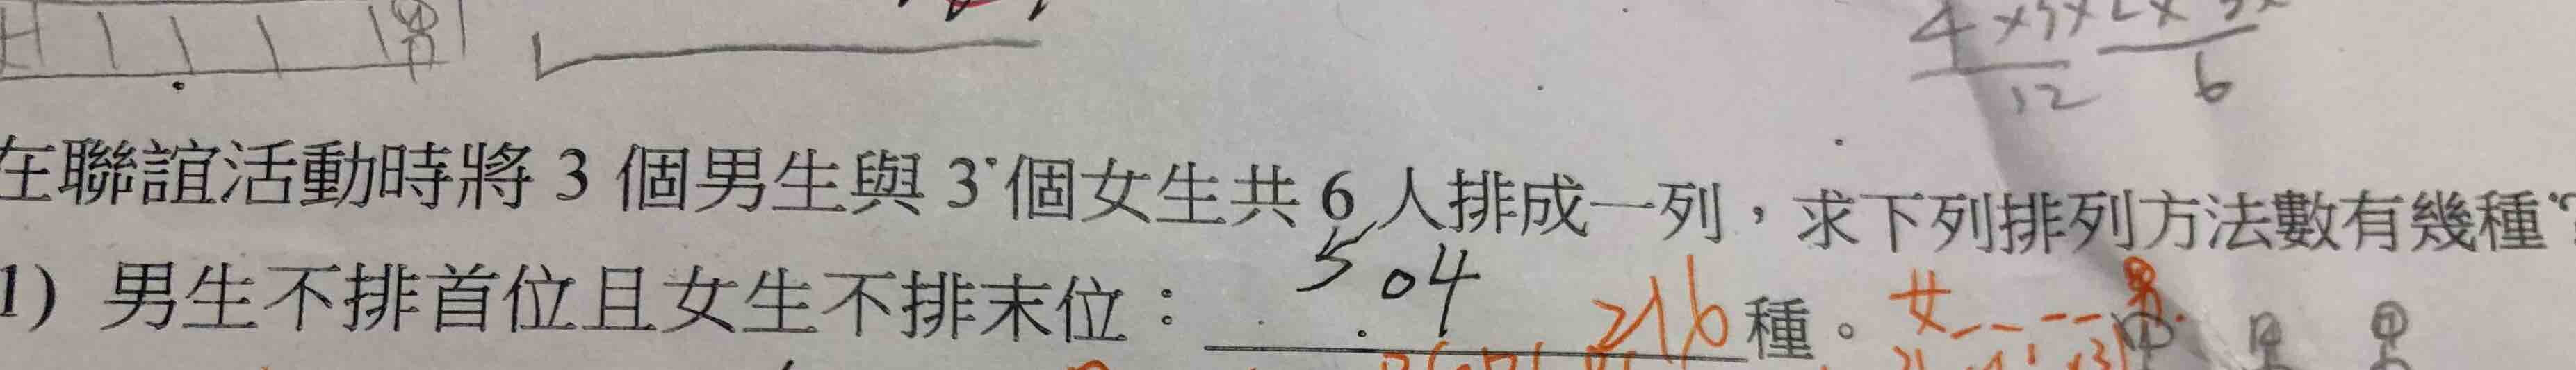 4×3×2×
12 6
在聯誼活動時將 3 個男生與 3 個女生共 6 人排成一列，求下列排列方法數有幾種？
1) 男生不排首位且女生不排末位： 504 216 種。 女 男